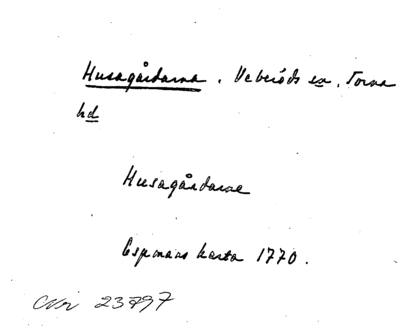 Husagårdarna. Veberöds sn, Torna
hd
Husagårdarne
Espmans karta 1770.
23797